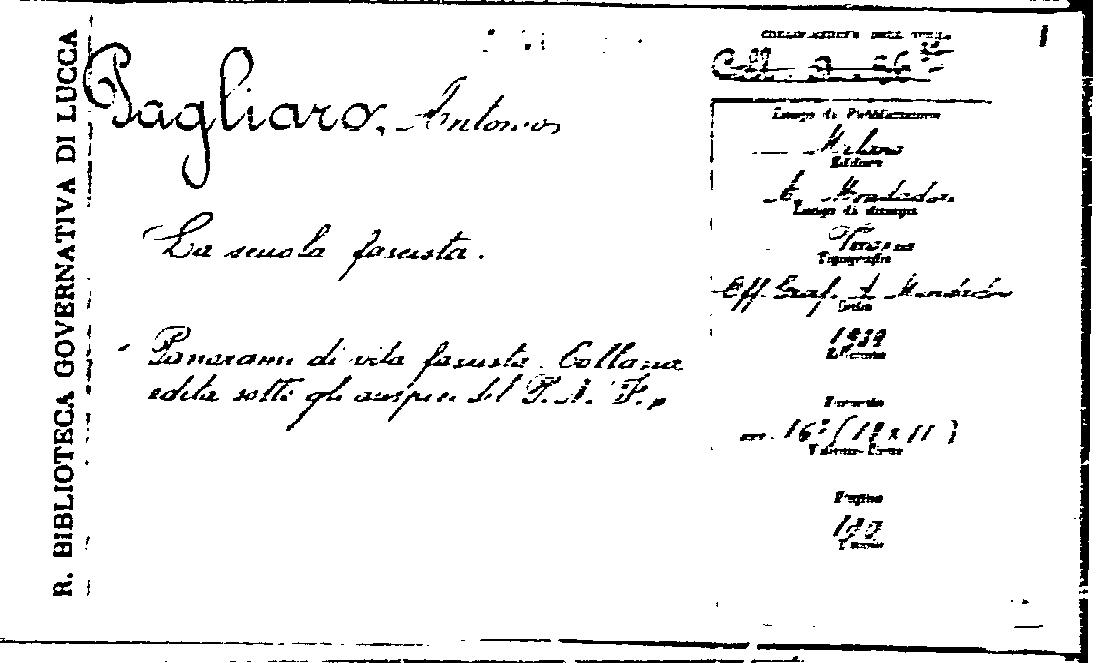 R. BIBLIOTECA GOVERNATIVA DI LUCCA
Pagliaro, Antonio
La scuola fascista.
Panorami di vita fascista. Collana
edita sotto gli auspici del P. N. F.
COLLOCAZIONE DELL'OPERA
Luogo di Pubblicazione
Milano
Editore
A. Mondadori
Luogo di stampa
Verona
Tipografia
Off. Graf. A. Mondadori
1939
Formato
in 16° (18 x 11)
Pagine